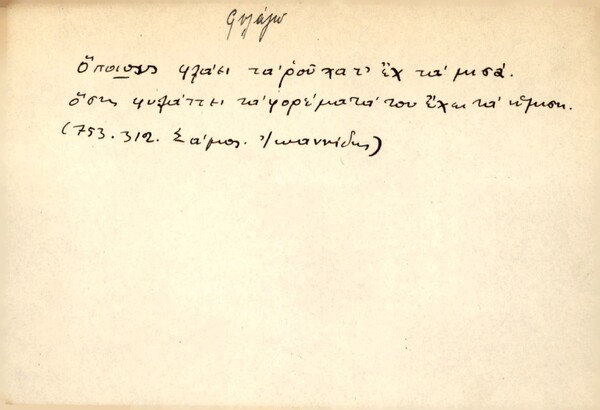 φυλάγω
Ὅποιους φλάει τὰ ῥοῦχα τ' ἔχ τὰ μισά.
ὅστις φυλάττει τὰ φορέματά του ἔχει τὰ ἥμιση.
(753. 312. Σάμος. Ἰωαννίδης)